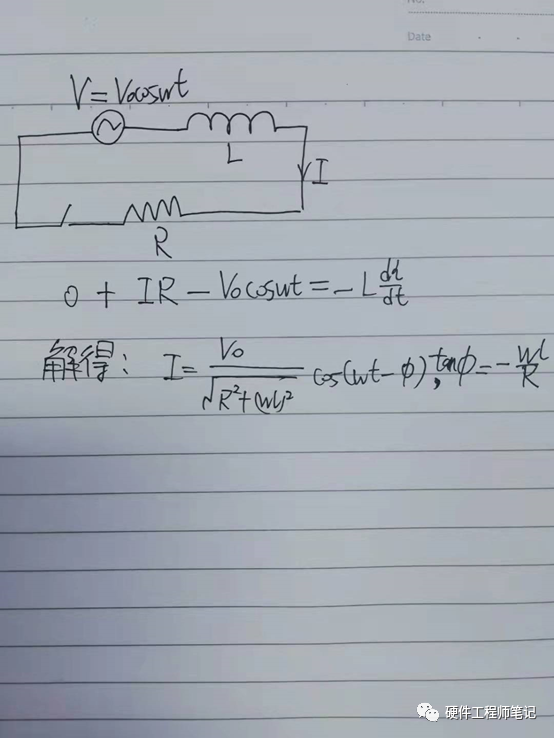 No.
Date
V=V₀coswt
L
I
R
0 + IR - V₀coswt = - L dI/dt
解得: I = V₀/√(R²+(wL)²) cos(wt-ϕ), tanϕ = - wL/R
硬件工程师笔记